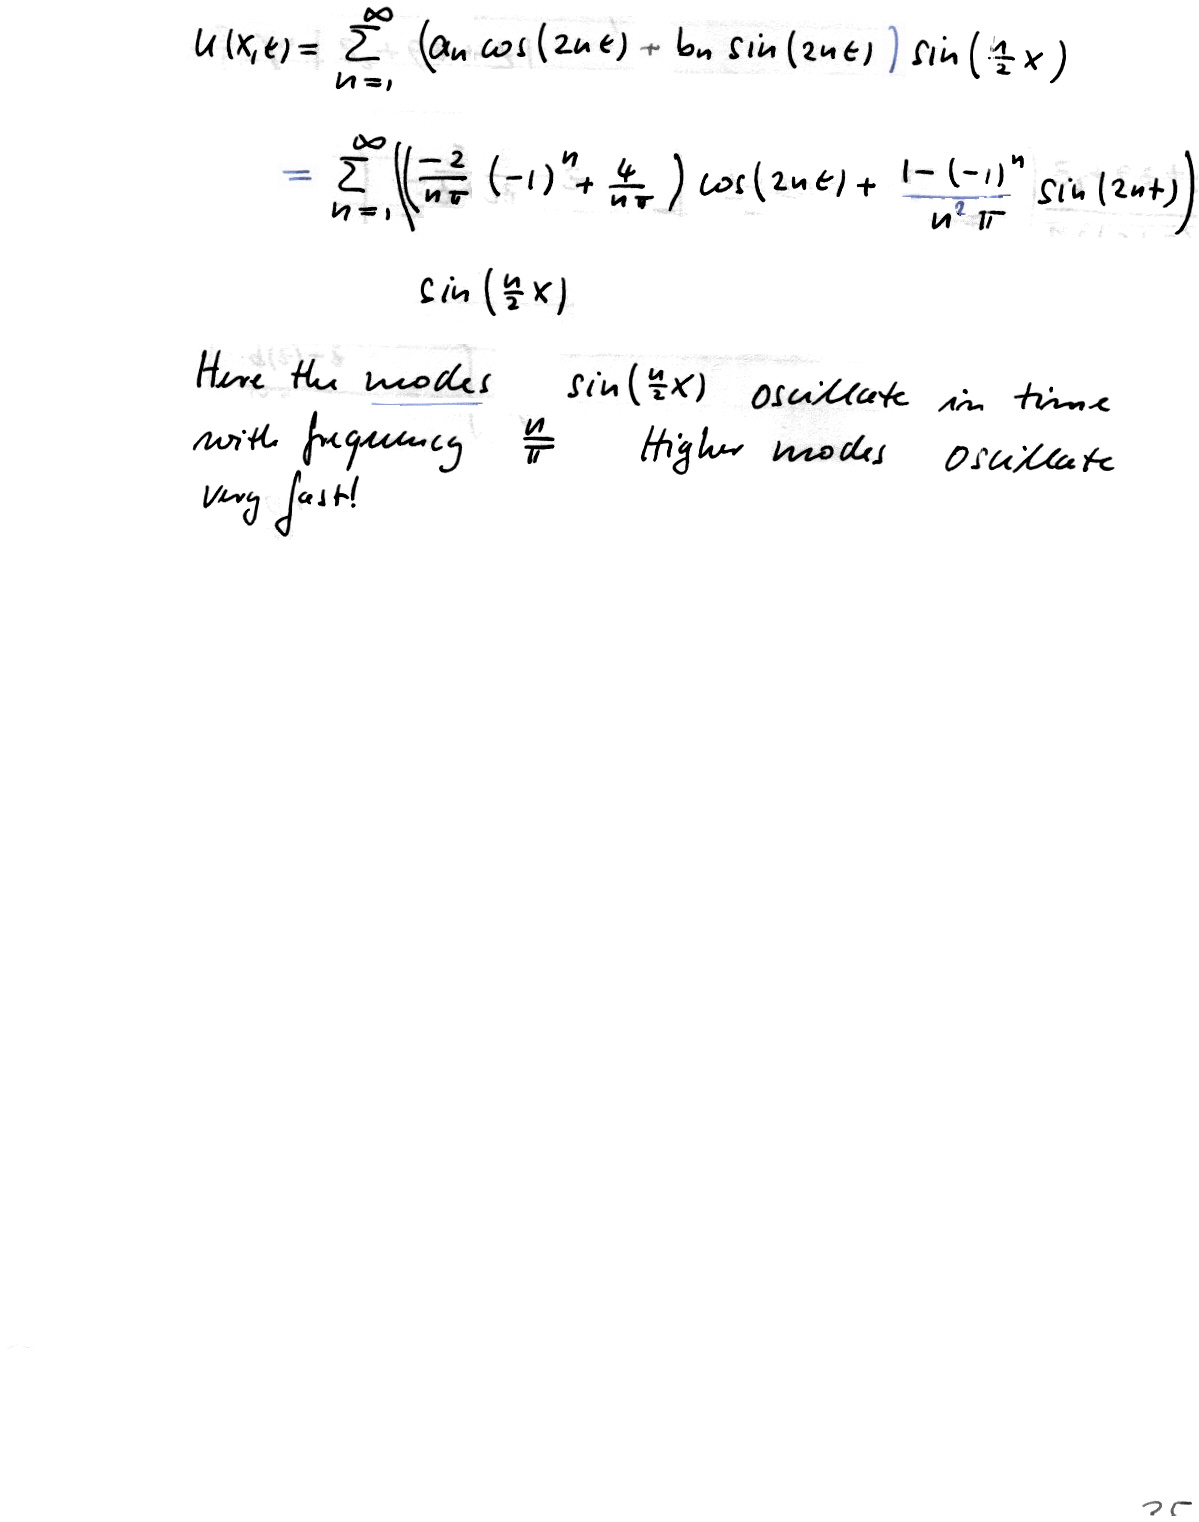 u(x,t) = ∑_{n=1}^{∞} (a_n cos(2nt) + b_n sin(2nt)) sin(n/2 x)
= ∑_{n=1}^{∞} ((-2/(nπ) (-1)^n + 4/(nπ)) cos(2nt) + (1-(-1)^n)/(n² π) sin(2nt))
sin(n/2 x)
Here the modes sin(n/2 x) oscillate in time
with frequency n/π Higher modes oscillate
very fast!